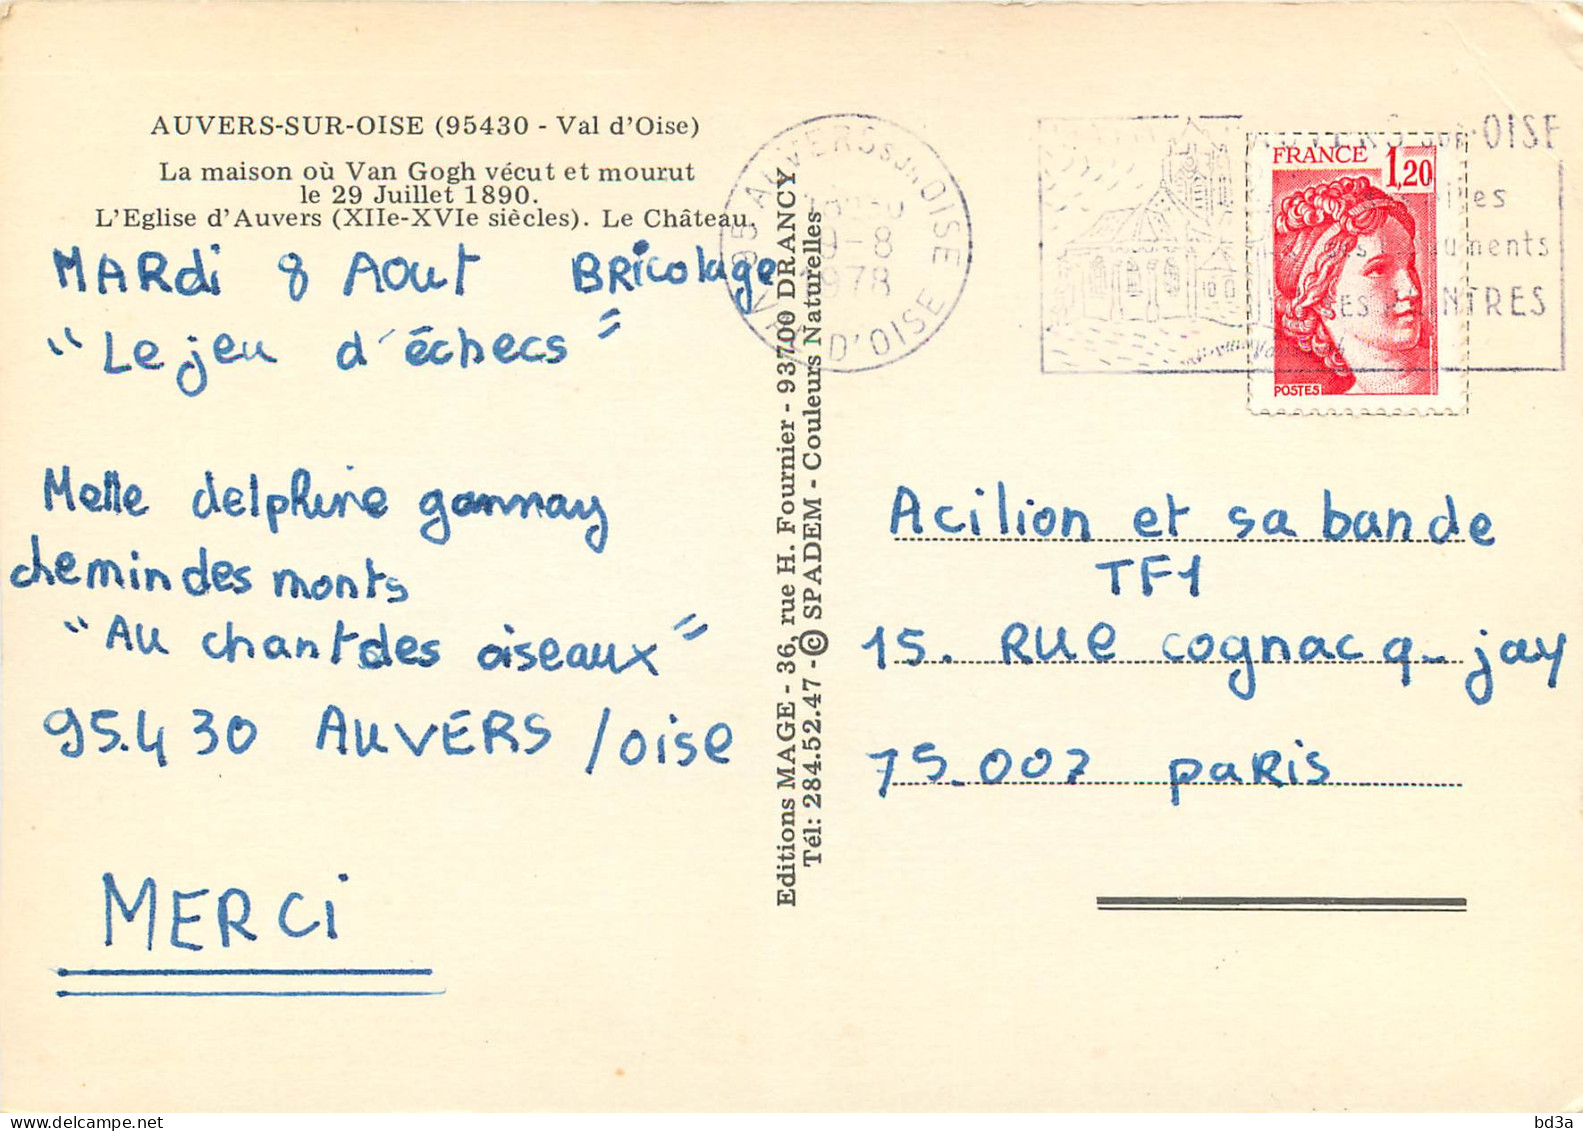 AUVERS-SUR-OISE (95430 - Val d'Oise)
La maison où Van Gogh vécut et mourut
le 29 Juillet 1890.
L'Eglise d'Auvers (XIIe-XVIe siècles). Le Château.
MARdi 8 Aout BRicolage
"Le jeu d'échecs"
Melle delphine gonnay
chemin des monts
"Au chant des oiseaux"
95.430 AUVERS /oise
MERCi
Editions MAGE - 36, rue H. Fournier - 93700 DRANCY
Tél: 284.52.47 - © SPADEM - Couleurs Naturelles
95 AUVERS SUR OISE
9-8
1978
VAL D'OISE
AUVERS sur OISE
SES PEINTRES
FRANCE 1,20
POSTES
Acilion et sa bande
TF1
15. RUE cognacq-jay
75.007 paRis
bd3a